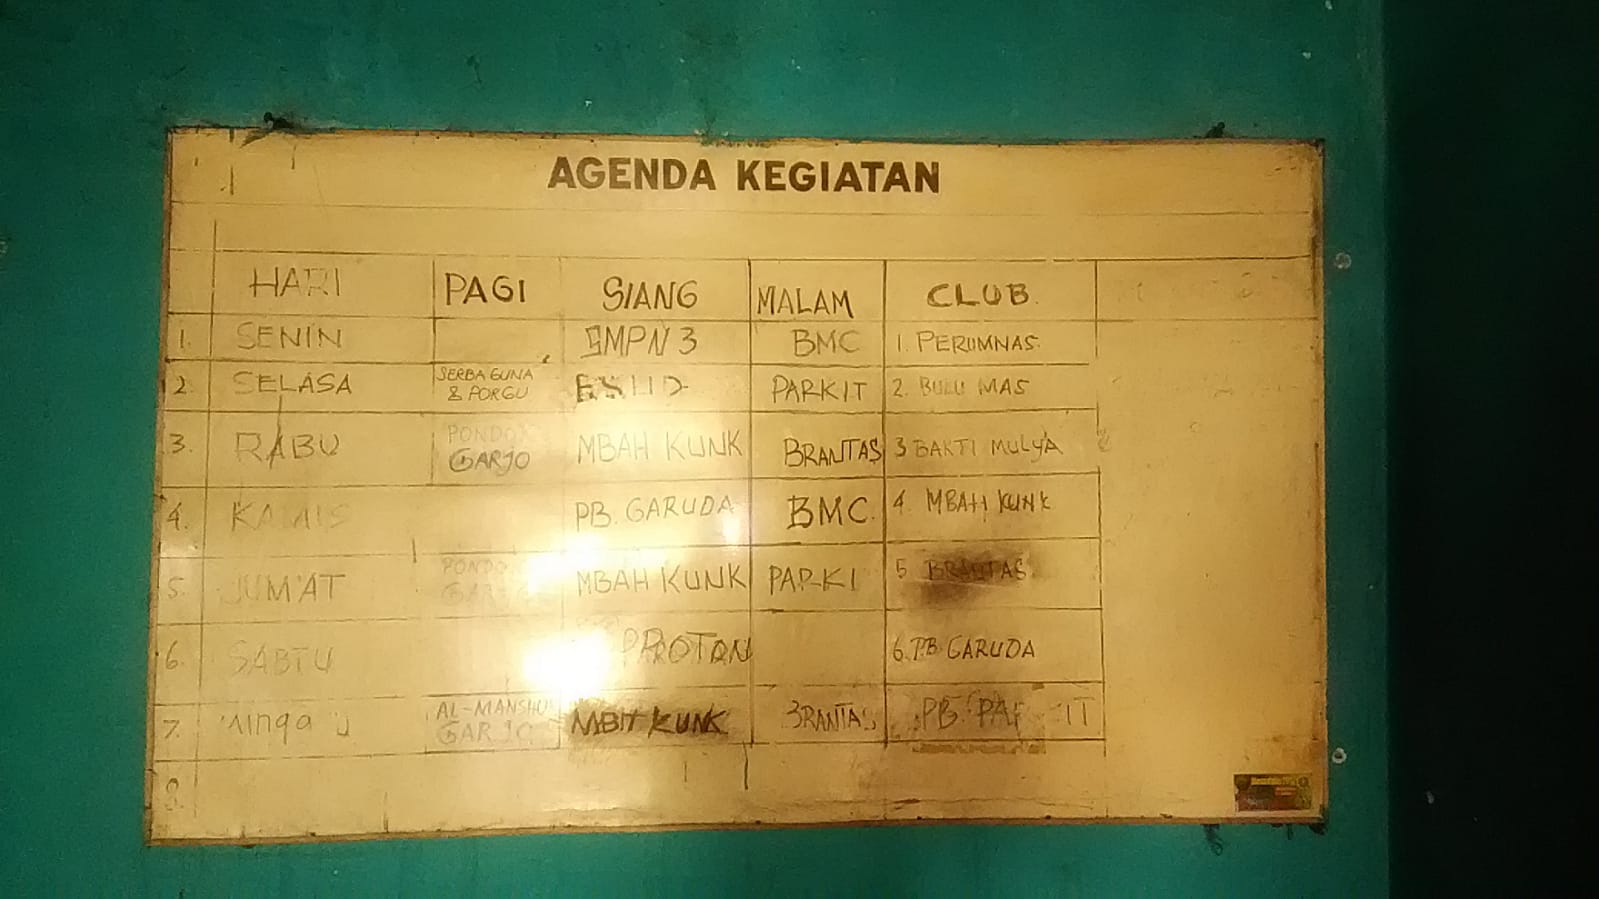 AGENDA KEGIATAN
HARI PAGI SIANG MALAM CLUB
1. SENIN SMPN 3 BMC 1. PERUMNAS
2. SELASA SERBA GUNA & PORGU PARKIT 2. BULU MAS
3. RABU PONDO GARJO MBAH KUNK BRANTAS 3 BAKTI MULYA
4. KAMIS PB. GARUDA BMC. 4. MBAH KUNK
5. JUM'AT PONDO MBAH KUNK PARKI 5 BRANTAS
6. SABTU PROTAN 6. PB GARUDA
7. AL-MANSHU GARJO KUNK PB
8.